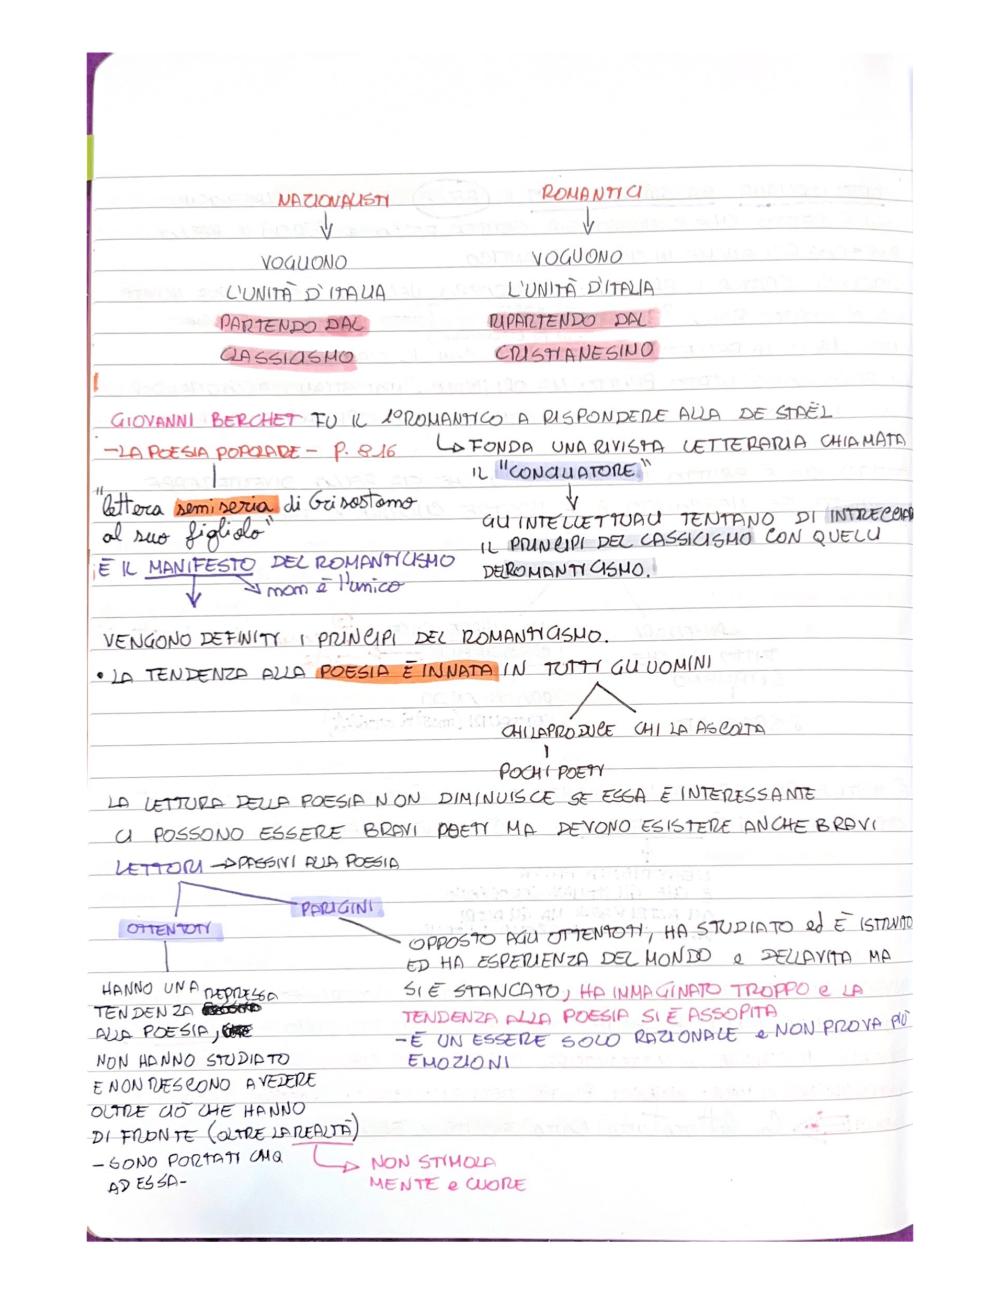 NAZIONALISTI
ROMANTICI
VOGLIONO
L'UNITÀ D'ITALIA
PARTENDO DAL
CLASSICISMO
VOGLIONO
L'UNITÀ D'ITALIA
RIPARTENDO DAL
CRISTIANESINO
GIOVANNI BERCHET FU IL 1° ROMANTICO A RISPONDERE ALLA DE STAËL
-LA POESIA POPOLARE- P. 816
↳ FONDA UNA RIVISTA LETTERARIA CHIAMATA
IL "CONCILIATORE"
GLI INTELLETTUALI TENTANO DI INTRECCIAR
IL PRINCIPI DEL CASSICISMO CON QUELLI
DELROMANTICISMO.
"lettera semiseria di Grisostomo
al suo figliolo"
È IL MANIFESTO DEL ROMANTICISMO
non è l'unico
VENGONO DEFINITI I PRINCIPI DEL ROMANTICISMO.
• LA TENDENZA ALLA POESIA È INNATA IN TUTTI GLI UOMINI
CHI LA PRODUCE CHI LA ASCOLTA
POCHI POETI
LA LETTURA DELLA POESIA NON DIMINUISCE SE ESSA È INTERESSANTE
CI POSSONO ESSERE BRAVI POETI MA DEVONO ESISTERE ANCHE BRAVI
LETTORI → PASSIVI ALLA POESIA
PARIGINI
OTTENTOTI
OPPOSTO AGLI OTTENTOTI, HA STUDIATO ed È ISTRUITO
ED HA ESPERIENZA DEL MONDO e DELLA VITA MA
SI È STANCATO, HA IMMAGINATO TROPPO e LA
TENDENZA ALLA POESIA SI È ASSOPITA
- È UN ESSERE SOLO RAZIONALE e NON PROVA PIÙ
EMOZIONI
HANNO UNA REPRESSA
TENDENZA
ALLA POESIA,
NON HANNO STUDIATO
E NON RIESCONO A VEDERE
OLTRE CIÒ CHE HANNO
DI FRONTE (OLTRE LA REALTÀ)
- SONO PORTATI CMQ
AD ESSA-
NON STIMOLA
MENTE e CUORE